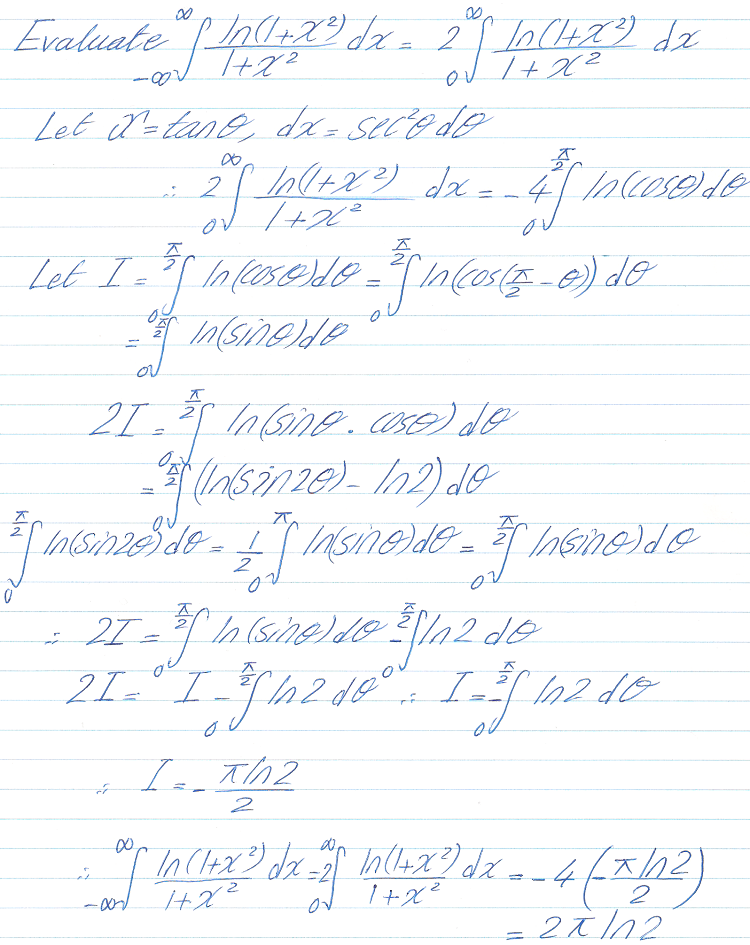 Evaluate ∫_{-∞}^{∞} ln(1+x²)/(1+x²) dx = 2 ∫_0^∞ ln(1+x²)/(1+x²) dx
Let x = tanθ, dx = sec²θ dθ
∴ 2 ∫_0^∞ ln(1+x²)/(1+x²) dx = -4 ∫_0^{π/2} ln(cosθ) dθ
Let I = ∫_0^{π/2} ln(cosθ) dθ = ∫_0^{π/2} ln(cos(π/2 - θ)) dθ
= ∫_0^{π/2} ln(sinθ) dθ
2I = ∫_0^{π/2} ln(sinθ . cosθ) dθ
= ∫_0^{π/2} (ln(sin2θ) - ln2) dθ
∫_0^{π/2} ln(sin2θ) dθ = 1/2 ∫_0^π ln(sinθ) dθ = ∫_0^{π/2} ln(sinθ) dθ
∴ 2I = ∫_0^{π/2} ln(sinθ) dθ - ∫_0^{π/2} ln2 dθ
2I = I - ∫_0^{π/2} ln2 dθ ∴ I = - ∫_0^{π/2} ln2 dθ
∴ I = - πln2/2
∴ ∫_{-∞}^{∞} ln(1+x²)/(1+x²) dx = 2 ∫_0^∞ ln(1+x²)/(1+x²) dx = -4 (-πln2/2)
= 2πln2